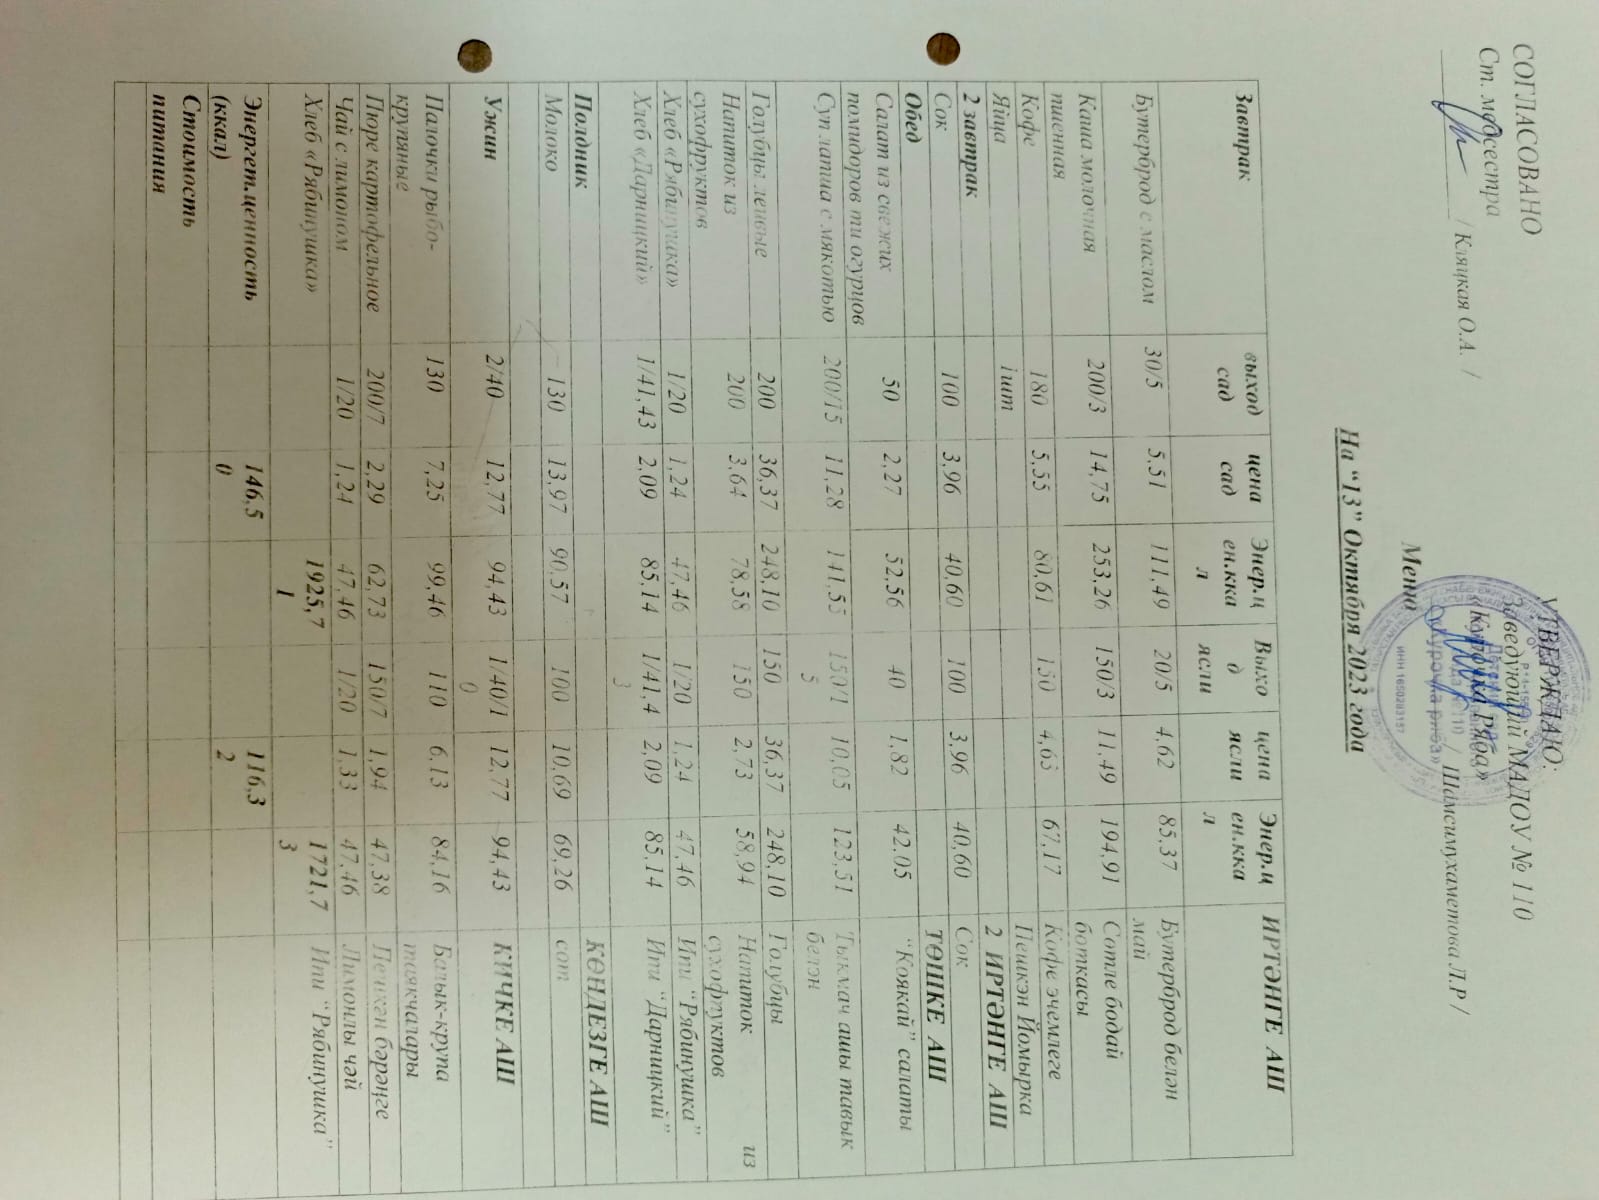 СОГЛАСОВАНО
Ст. медсестра
/ Кляцкая О.А. /
УТВЕРЖДАЮ:
Заведующий МАДОУ № 110
«Курочка ряба»
/ Шаймухаметова Л.Р /
ИНН 1650283157
Меню
На “13” Октября 2023 года
Завтрак выход сад цена сад Энер.ц ен.кка л Выхо д ясли цена ясли Энер.ц ен.кка л ИРТӘНГЕ АШ
Бутерброд с маслом 30/5 5,51 111,49 20/5 4,62 85,37 Бутерброд белән май
Каша молочная пшенная 200/3 14,75 253,26 150/3 11,49 194,91 Сөтле бодай боткасы
Кофе 180 5,55 80,61 150 4,63 67,17 Кофе эчемлеге
Яйца 1шт Пешкән Йомырка
2 завтрак 2 ИРТӘНГЕ АШ
Сок 100 3,96 40,60 100 3,96 40,60 Сок
Обед ТӨШКЕ АШ
Салат из свежих помидоров ти огурцов 50 2,27 52,56 40 1,82 42,05 “Коякай” салаты
Суп лапша с мякотью 200/15 11,28 141,55 150/1 5 10,05 123,51 Тыкмач ашы тавык белән
Голубцы ленивые 200 36,37 248,10 150 36,37 248,10 Голубцы
Напиток из сухофруктов 200 3,64 78,58 150 2,73 58,94 Напиток из сухофруктов
Хлеб «Рябинушка» 1/20 1,24 47,46 1/20 1,24 47,46 Ипи “Рябинушка”
Хлеб «Дарницкий» 1/41,43 2,09 85,14 1/41,4 3 2,09 85,14 Ипи “Дарницкий”
Полдник КӨНДЕЗГЕ АШ
Молоко 130 13,97 90,57 100 10,69 69,26 сөт
Ужин 2/40 12,77 94,43 1/40/1 0 12,77 94,43 КИЧКЕ АШ
Палочки рыбо-крупяные 130 7,25 99,46 110 6,13 84,16 Балык-крупа таякчалары
Пюре картофельное 200/7 2,29 62,73 150/7 1,94 47,38 Пешкән бәрәңге
Чай с лимоном 1/20 1,24 47,46 1/20 1,33 47,46 Лимонлы чәй
Хлеб «Рябинушка» 1925,7 1 1721,7 3 Ипи “Рябинушка”
Энергет.ценность (ккал) 146,5 0 116,3 2
Стоимость питания